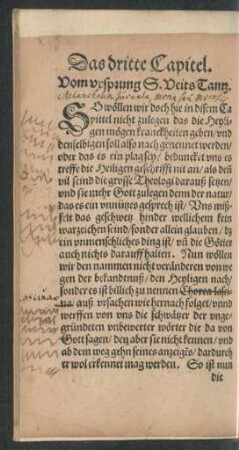 Das dritte Capitel.
Vom vrsprung S. Veits Tantz.
SO wöllen wir doch hie in disem Ca
pittel nicht zulegen das die Heyli-
gen mögen kranckheiten geben / vnd
denselbigen soll also nach genennet werden
oder das es ein plag sey / bedunckt vns es
treffe die Heiligen geschrifft nit an / als deñ
vil seind die grosse Theologi darauß setzen /
vnd sie mehr Gott zulegen denn der natur /
das es ein vnnützes gesprech ist / Vns miß-
felt das geschwetz hinder wellichem kein
warzeichen seind / sonder allein glauben / dz
ein vnmenschliches ding ist / vñ die Götter
auch nichts darauff halten. Nun wöllen
wir den nammen nicht verånderen von we
gen der bekandtnuß / den Heyligen nach /
sonder es ist billich zu nennen Chorea lasci-
ua / auß vrsachen wie hernach folget / vnnd
werffen von vns die schwåtzer der vnge-
gründeten vnbewerter wörter die da von
Gott sagen / den aber sie nicht kennen / vnd
ab dem weg gehn seines anzeigēs / dardurch
er wol erkennet mag werden. So ist nun
die